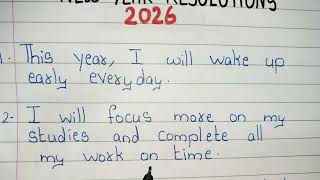 NEW YEAR RESOLUTIONS
2026
1. This year, I will wake up
early everyday.
2- I will focus more on my
studies and complete all
my work on time.